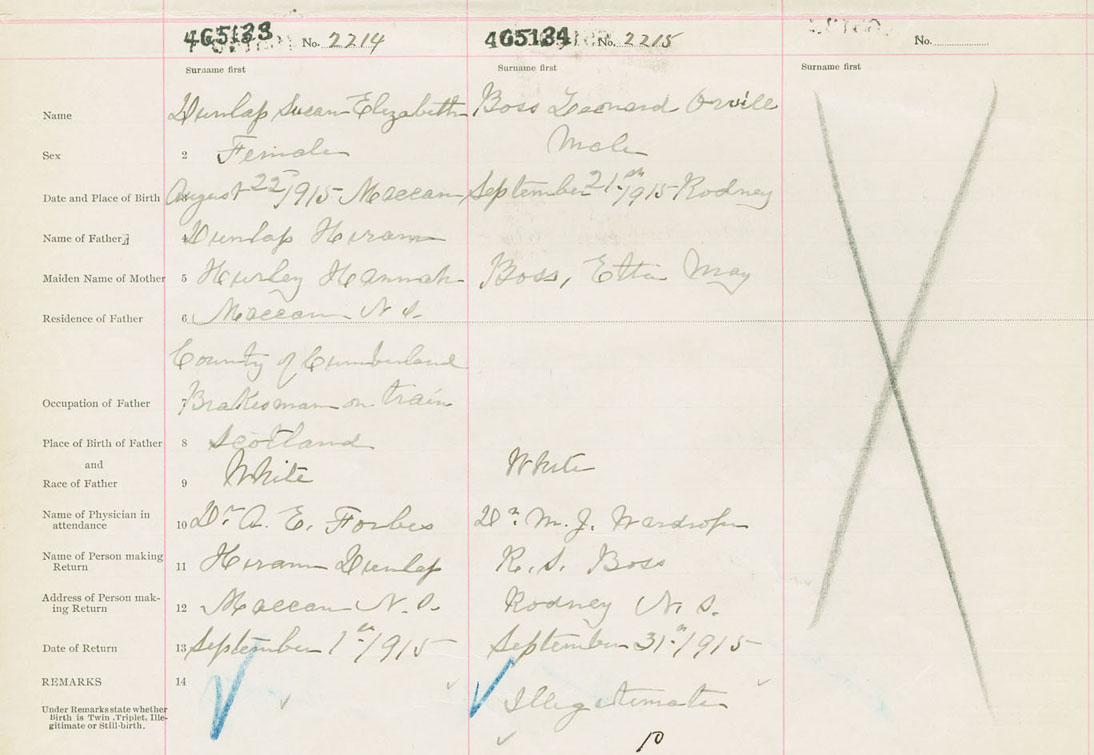 465133 No. 2214 465134 No. 2215 No.
Surname first Surname first Surname first
Name Dunlap Susan Elizabeth Boss Leonard Orville
Sex 2 Female Male
Date and Place of Birth August 22nd 1915 Maccan September 21th 1915 Rodney
Name of Father 4 Dunlap Hiram
Maiden Name of Mother 5 Hurley Hannah Boss, Etta May
Residence of Father 6 Maccan N.S.
County of Cumberland
Occupation of Father 7 Brakesman on train
Place of Birth of Father 8 Scotland
and
Race of Father 9 White White
Name of Physician in attendance 10 Dr A. E. Forbes Dr M. J. Wardrope
Name of Person making Return 11 Hiram Dunlap R. S. Boss
Address of Person mak-ing Return 12 Maccan N.S. Rodney N.S.
Date of Return 13 September 1th/1915 September 31th/1915
REMARKS 14 Illegetimate
Under Remarks state whether
Birth is Twin, Triplet, Ille-
gitimate or Still-birth.